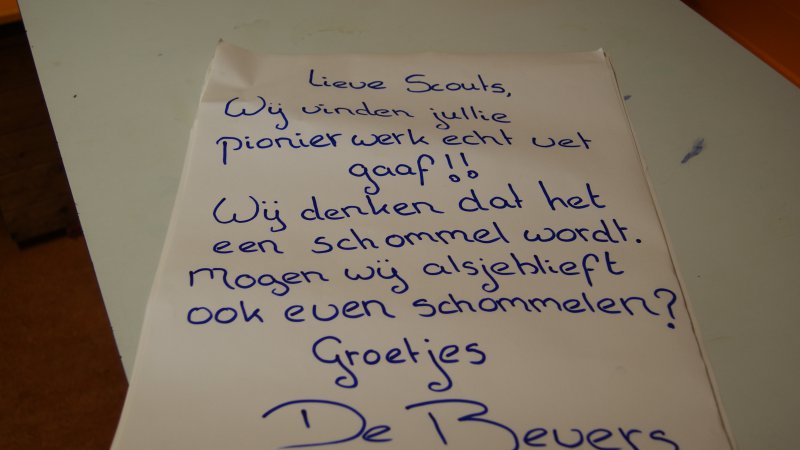 Lieve Scouts,
Wij vinden jullie
pionierwerk echt vet
gaaf!!
Wij denken dat het
een schommel wordt.
Mogen wij alsjeblieft
ook even schommelen?
Groetjes
De Bevers